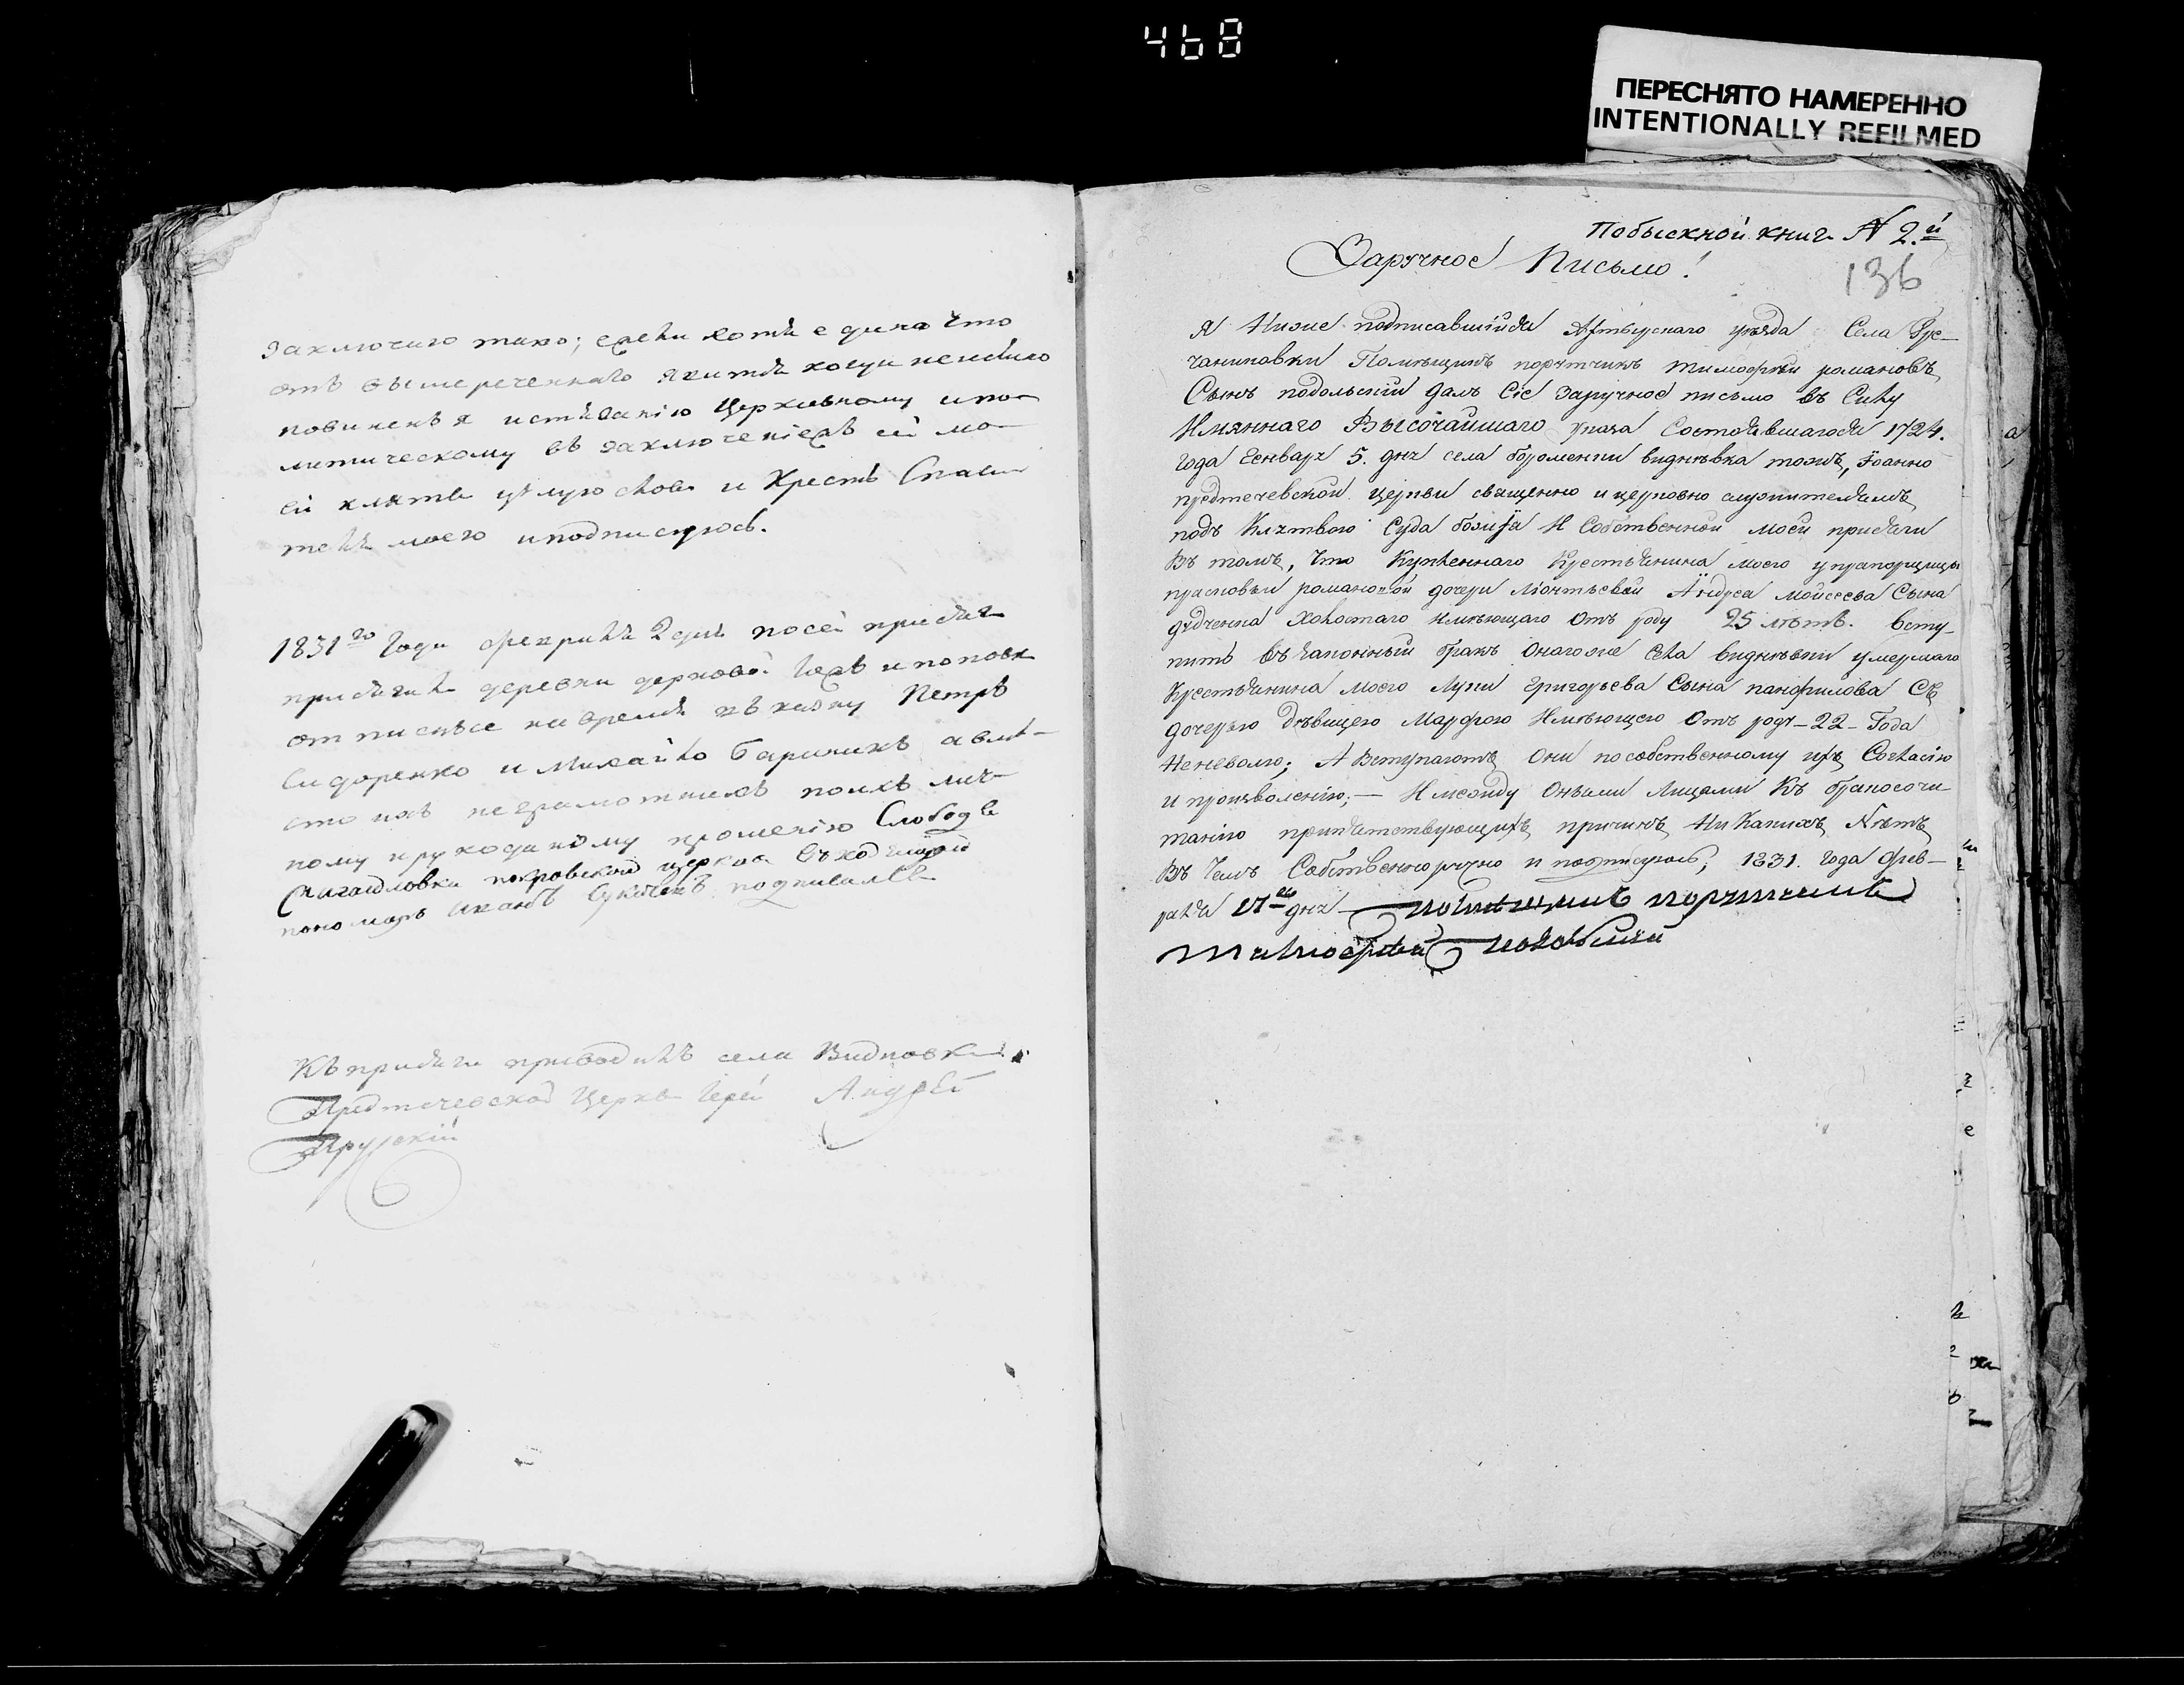 468
ПЕРЕСНЯТО НАМЕРЕННО
INTENTIONALLY REFILMED
заключаю тако; ежели хотя едино что
отъ вышереченнаго
повиненъ я истязанію Церковному и по-
литическому въ заключеніежъ сей мо-
ей клятвы цѣлую слова и Крестъ Спаси-
теля моего и подписуюсь.
1831го Года февраля 2 дня по сей присягѣ
присягали деревни
Петръ
Сидоренко и Михайло а вмѣ-
сто ихъ неграмотныхъ по ихъ лич-
ному и рукоданному прошенію Слободы
покровской церкви
пономарь Иванъ подписался
Къ присяги приводилъ села Видновки
Предтечевской Церкви Іерей Андрей
Прускій
По обыскной книгѣ N 2.й
136
Заручное Письмо!
Я Ниже подписавшійся Ахтырскаго уѣзда Села Рус-
чаниновки Помѣщикъ порутчикъ тимофѣй романовъ
Сынъ подольскій далъ Сіе заручное письмо въ Силу
Имяннаго Высочайшаго указа Состоявшагося 1724.
года Генваря 5. дня села боромении виднѣвка тожъ, Іоанно
предтечевской церкви священно и церковно служителямъ
подъ Клятвою Суда божія И Собственной моей присяги
Въ томъ, Что Купленнаго Крестьянина моего у прапорщицы
прасковьи романовой дочери Леонтьевой Андрея Мойсеева Сына
дудченка Холостаго Имѣющаго Отъ роду 25 лѣтъ. всту-
пить въ законный бракъ Онагоже Села виднѣвки умершаго
Крестьянина моего Луки григорьева Сына панфилова Съ
дочерью дѣвицею Марфою Имѣющею Отъ роду - 22 - Года
Неневолю; А Вступаютъ Они по собственному ихъ Согласію
и произволенію; - И между Оными Лицами Къ бракосоче-
танію препятствующихъ причинъ Ни Какихъ Нѣтъ
Въ Чемъ Собственноручно и подписуюсь; 1831. года фев-
раля 17го дня помѣщикъ порутчикъ
тимофѣй подольскій